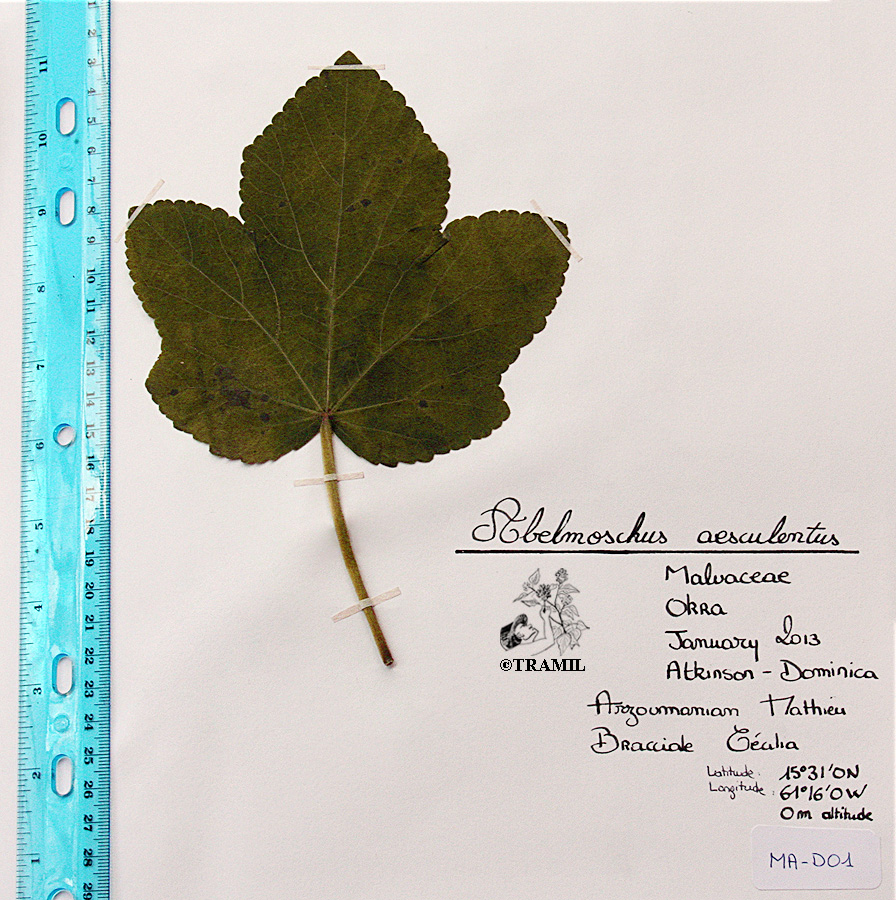 Abelmoschus aesculentus
Malvaceae
Okra
January 2013
Atkinson - Dominica
©TRAMIL
Arzoumanian Mathieu
Bracciale Cécilia
Latitude: 15°31'ON
Longitude: 61°16'OW
Om altitude
MA-D01
11
10
9
8
7
6
5
4
3
2
1
1
2
3
4
5
6
7
8
9
10
11
12
13
14
15
16
17
18
19
20
21
22
23
24
25
26
27
28
29